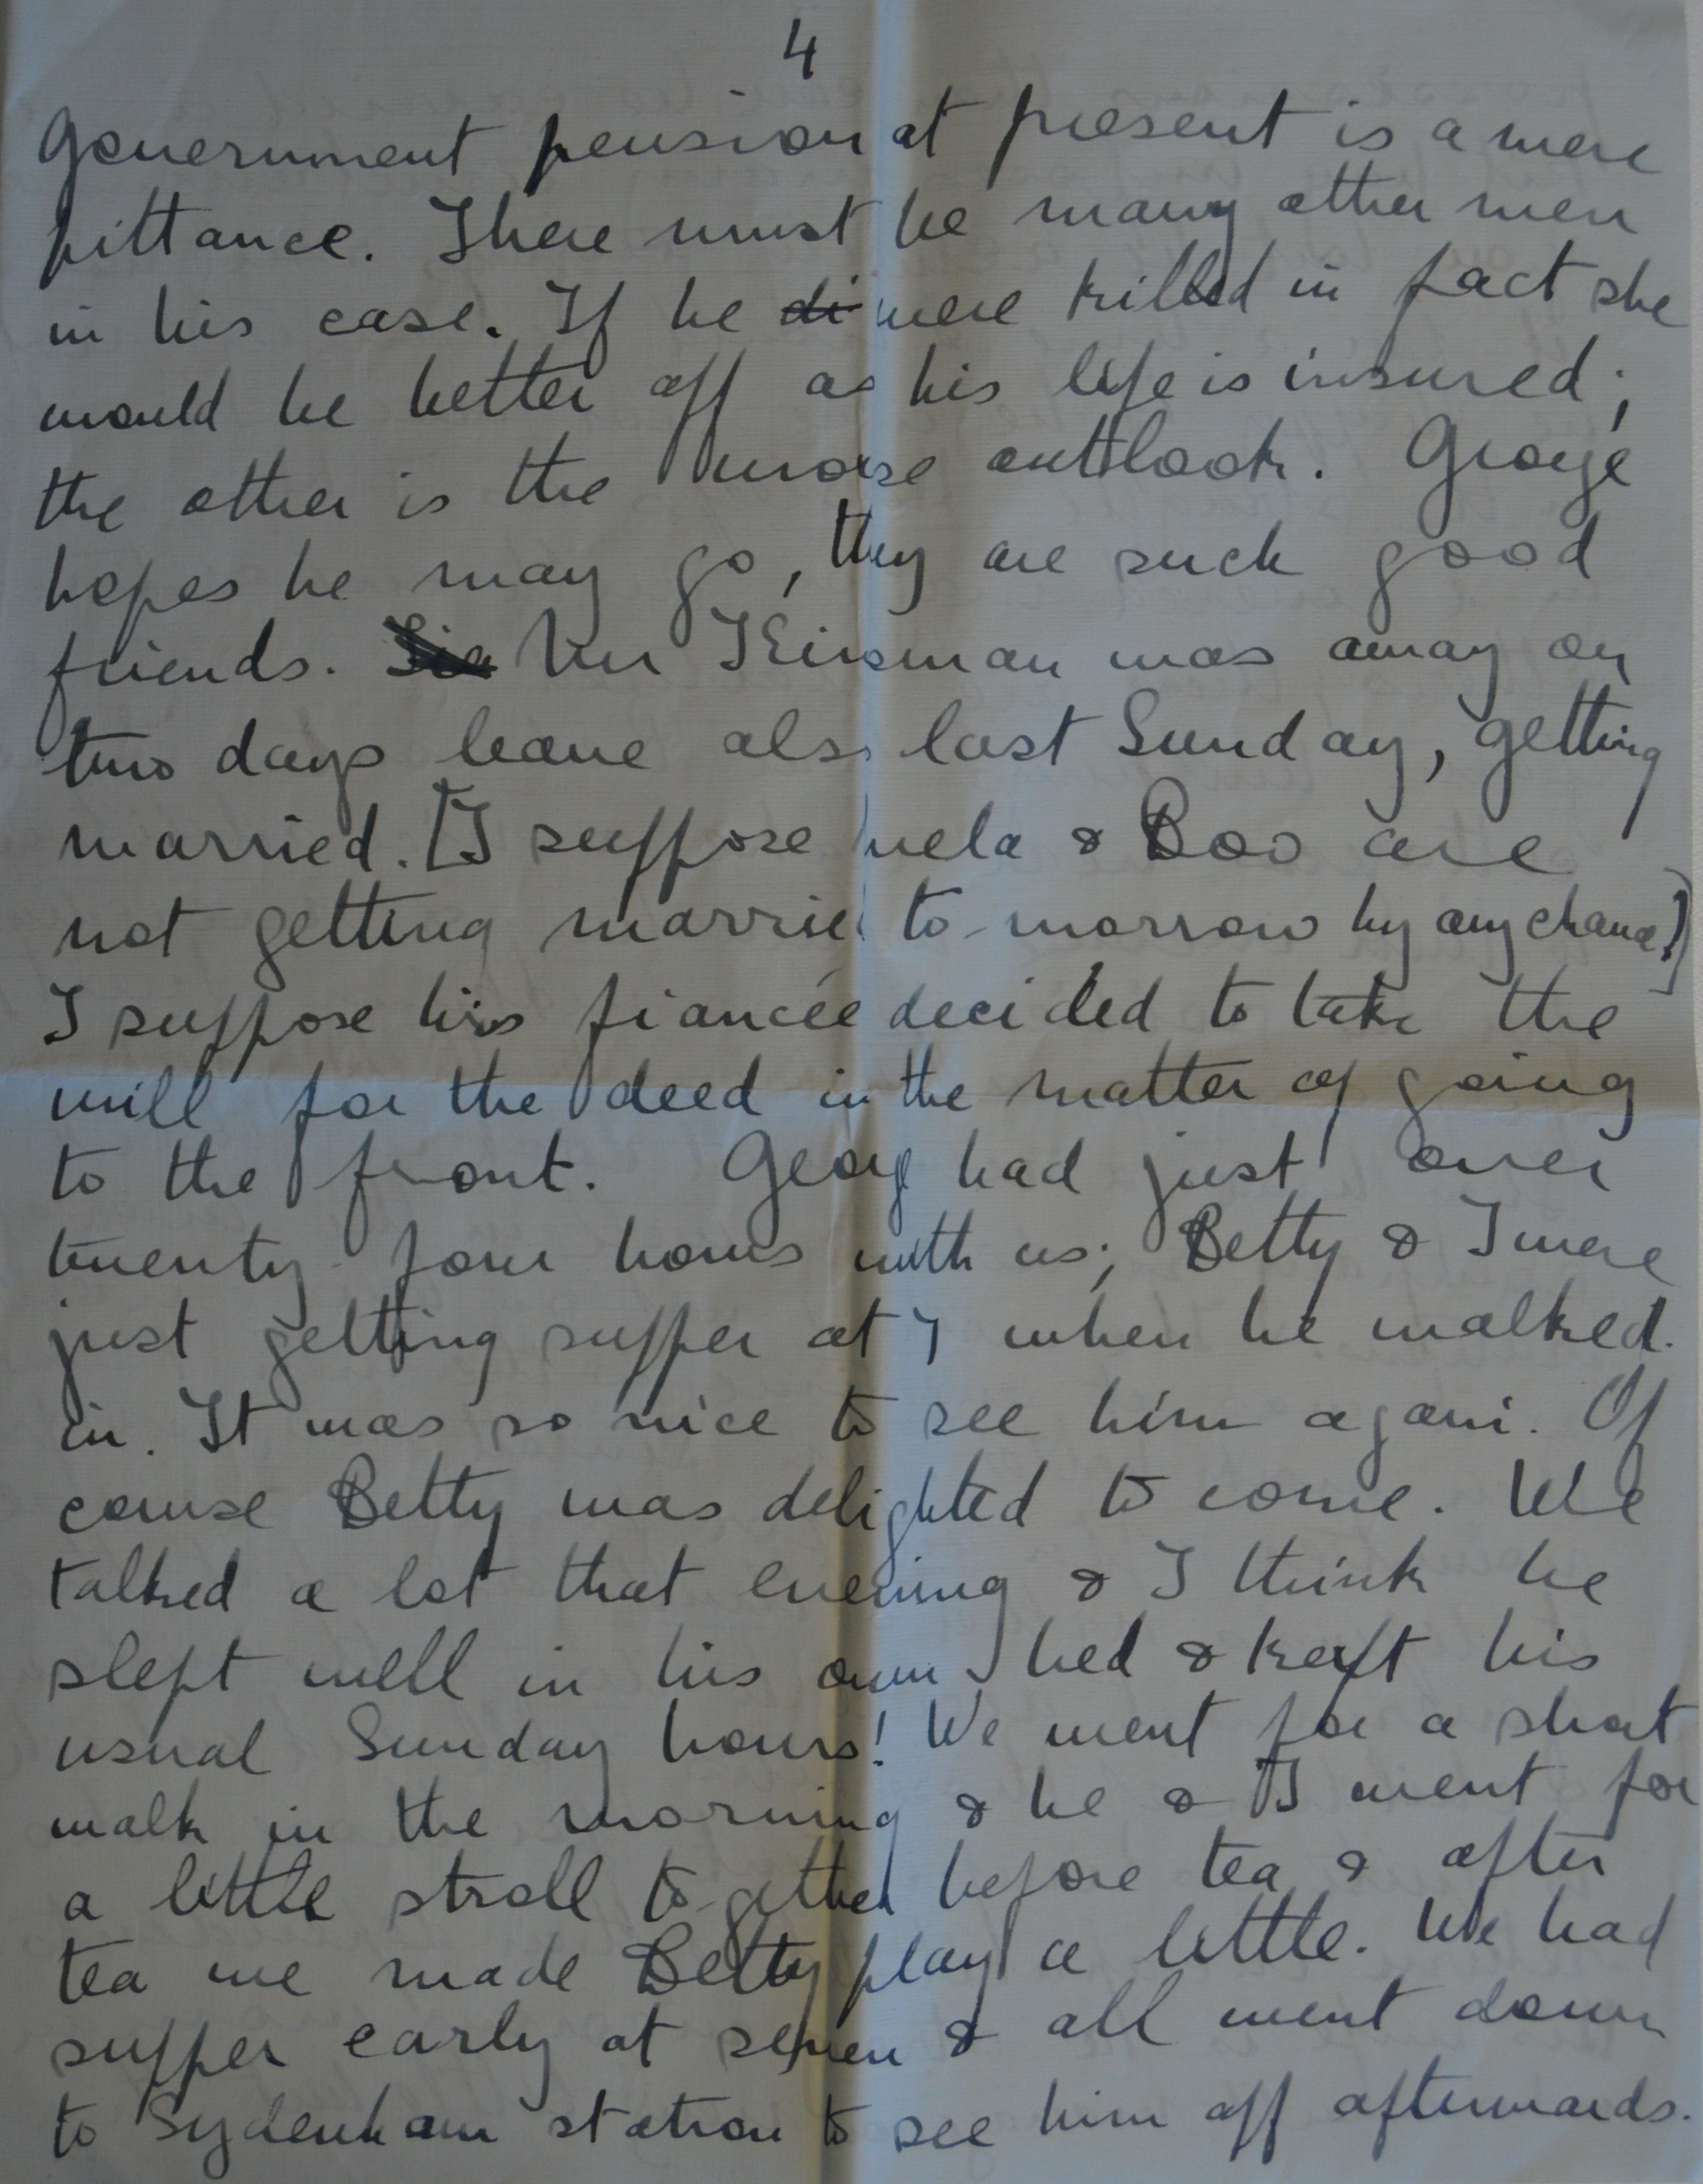 4
Government pension at present is a mere
pittance. There must be many other men
in his case. If he di were killed in fact she
would be better off as his life is insured;
the other is the worse outlook. George
hopes he may go, they are such good
friends. Kinsman was away on
two days leave also last Sunday, getting
married. [I suppose & Boo are
not getting married to-morrow by any chance?]
I suppose his fiancée decided to take the
will for the deed in the matter of going
to the front. George had just over
twenty-four hours with us; Betty & I were
just getting supper at 7 when he walked
in. It was so nice to see him again. Of
course Betty was delighted to come. We
talked a lot that evening & I think he
slept well in his own bed & kept his
usual Sunday hours! We went for a short
walk in the morning & he & I went for
a little stroll to-gether before tea & after
tea we made Betty play a little. We had
supper early at seven & all went down
to Sydenham station to see him off afterwards.